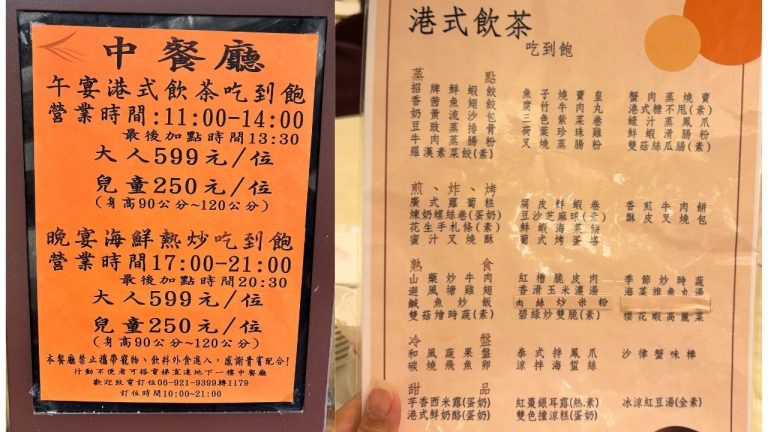 中餐廳
午宴港式飲茶吃到飽
營業時間:11:00-14:00
最後加點時間13:30
大人599元/位
兒童250元/位
(身高90公分~120公分)
晚宴海鮮熱炒吃到飽
營業時間17:00-21:00
最後加點時間20:30
大人599元/位
兒童250元/位
(身高90公分~120公分)
本餐廳禁止攜帶寵物、飲料外食進入,感謝貴賓配合!
行動不便者可搭電梯直達地下一樓中餐廳
歡迎致電訂位06-921-9399轉1179
訂位時間10:00~21:00
港式飲茶
吃到飽
蒸點
招牌鮮蝦餃
香茜魚翅餃
奶黃流沙包
豉汁蒸排骨
牛肉滑腸粉
羅漢素菜餃(素)
魚子燒賣皇
腐竹牛肉丸
三色紫菜卷
荷葉珍珠雞
叉燒蒸腸粉
蟹肉蒸燒賣
港式糖不甩(素)
蠔汁蒸鳳爪
鮮蝦滑腸粉
雙菇絲瓜腸(素)
煎、炸、烤
廣式蘿蔔糕
煉奶螺絲卷(蛋奶)
花生手札條(素)
蜜汁叉燒酥
腐皮炸蝦卷
豆沙芝麻球(素)
鮮蝦海菜餅
葡式烤蛋塔
香煎牛肉餅
酥皮叉燒包
熟食
山藥炒牛肉
避風塘雞翅
鹹魚炒飯
雙菇燴時蔬(素)
紅糟脆皮肉
香滑玉米濃湯
肉絲炒米粉
碧綠炒雙脆(素)
季節炒時蔬
海菜旗魚丸湯
櫻花蝦高麗菜
冷盤
和風蔬果盤
碳燒飛魚卵
泰式拌鳳爪
涼拌海蜇絲
沙律蟹味棒
甜品
芋香西米露(蛋奶)
港式鮮奶酪(蛋奶)
紅棗銀耳露(熱.素)
雙色撞涼糕(蛋奶)
冰涼紅豆湯(全素)